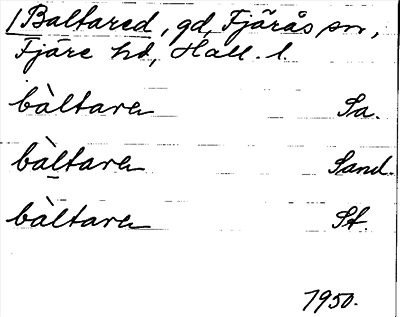 Baltared, gd, Fjärås sn,
Fjäre hd, Hall. l.
bàltarɐn Sa.
bàltarɐn Sand.
bàltarɐn St.
1950.